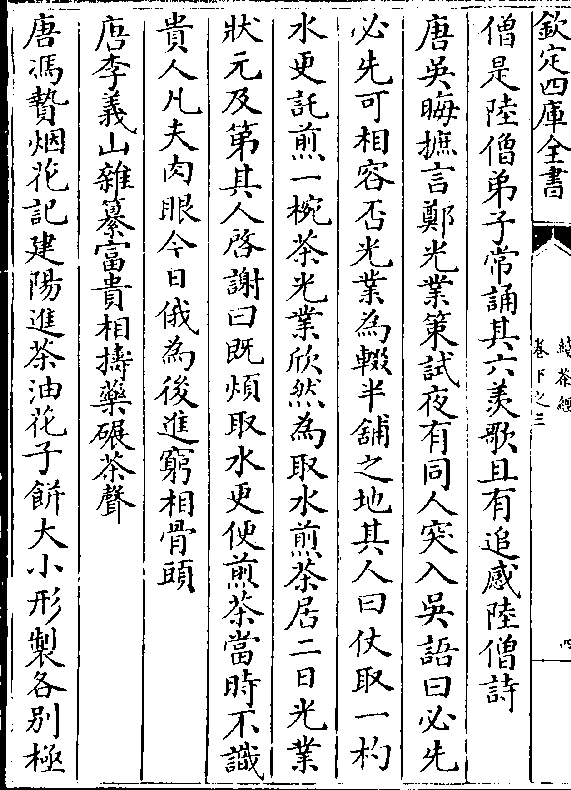 欽定四庫全書
續茶經
卷下之三
四
僧是陸僧弟子常誦其六羡歌且有追感陸僧詩
唐吳晦摭言鄭光業策試夜有同人突入吳語曰必先
必先可相容否光業為輟半舖之地其人曰仗取一杓
水更託煎一椀茶光業欣然為取水煎茶居二日光業
狀元及第其人啓謝曰既煩取水更便煎茶當時不識
貴人凡夫肉眼今日俄為後進窮相骨頭
唐李義山雜纂富貴相擣藥碾茶聲
唐馮贄烟花記建陽進茶油花子餅大小形製各别極